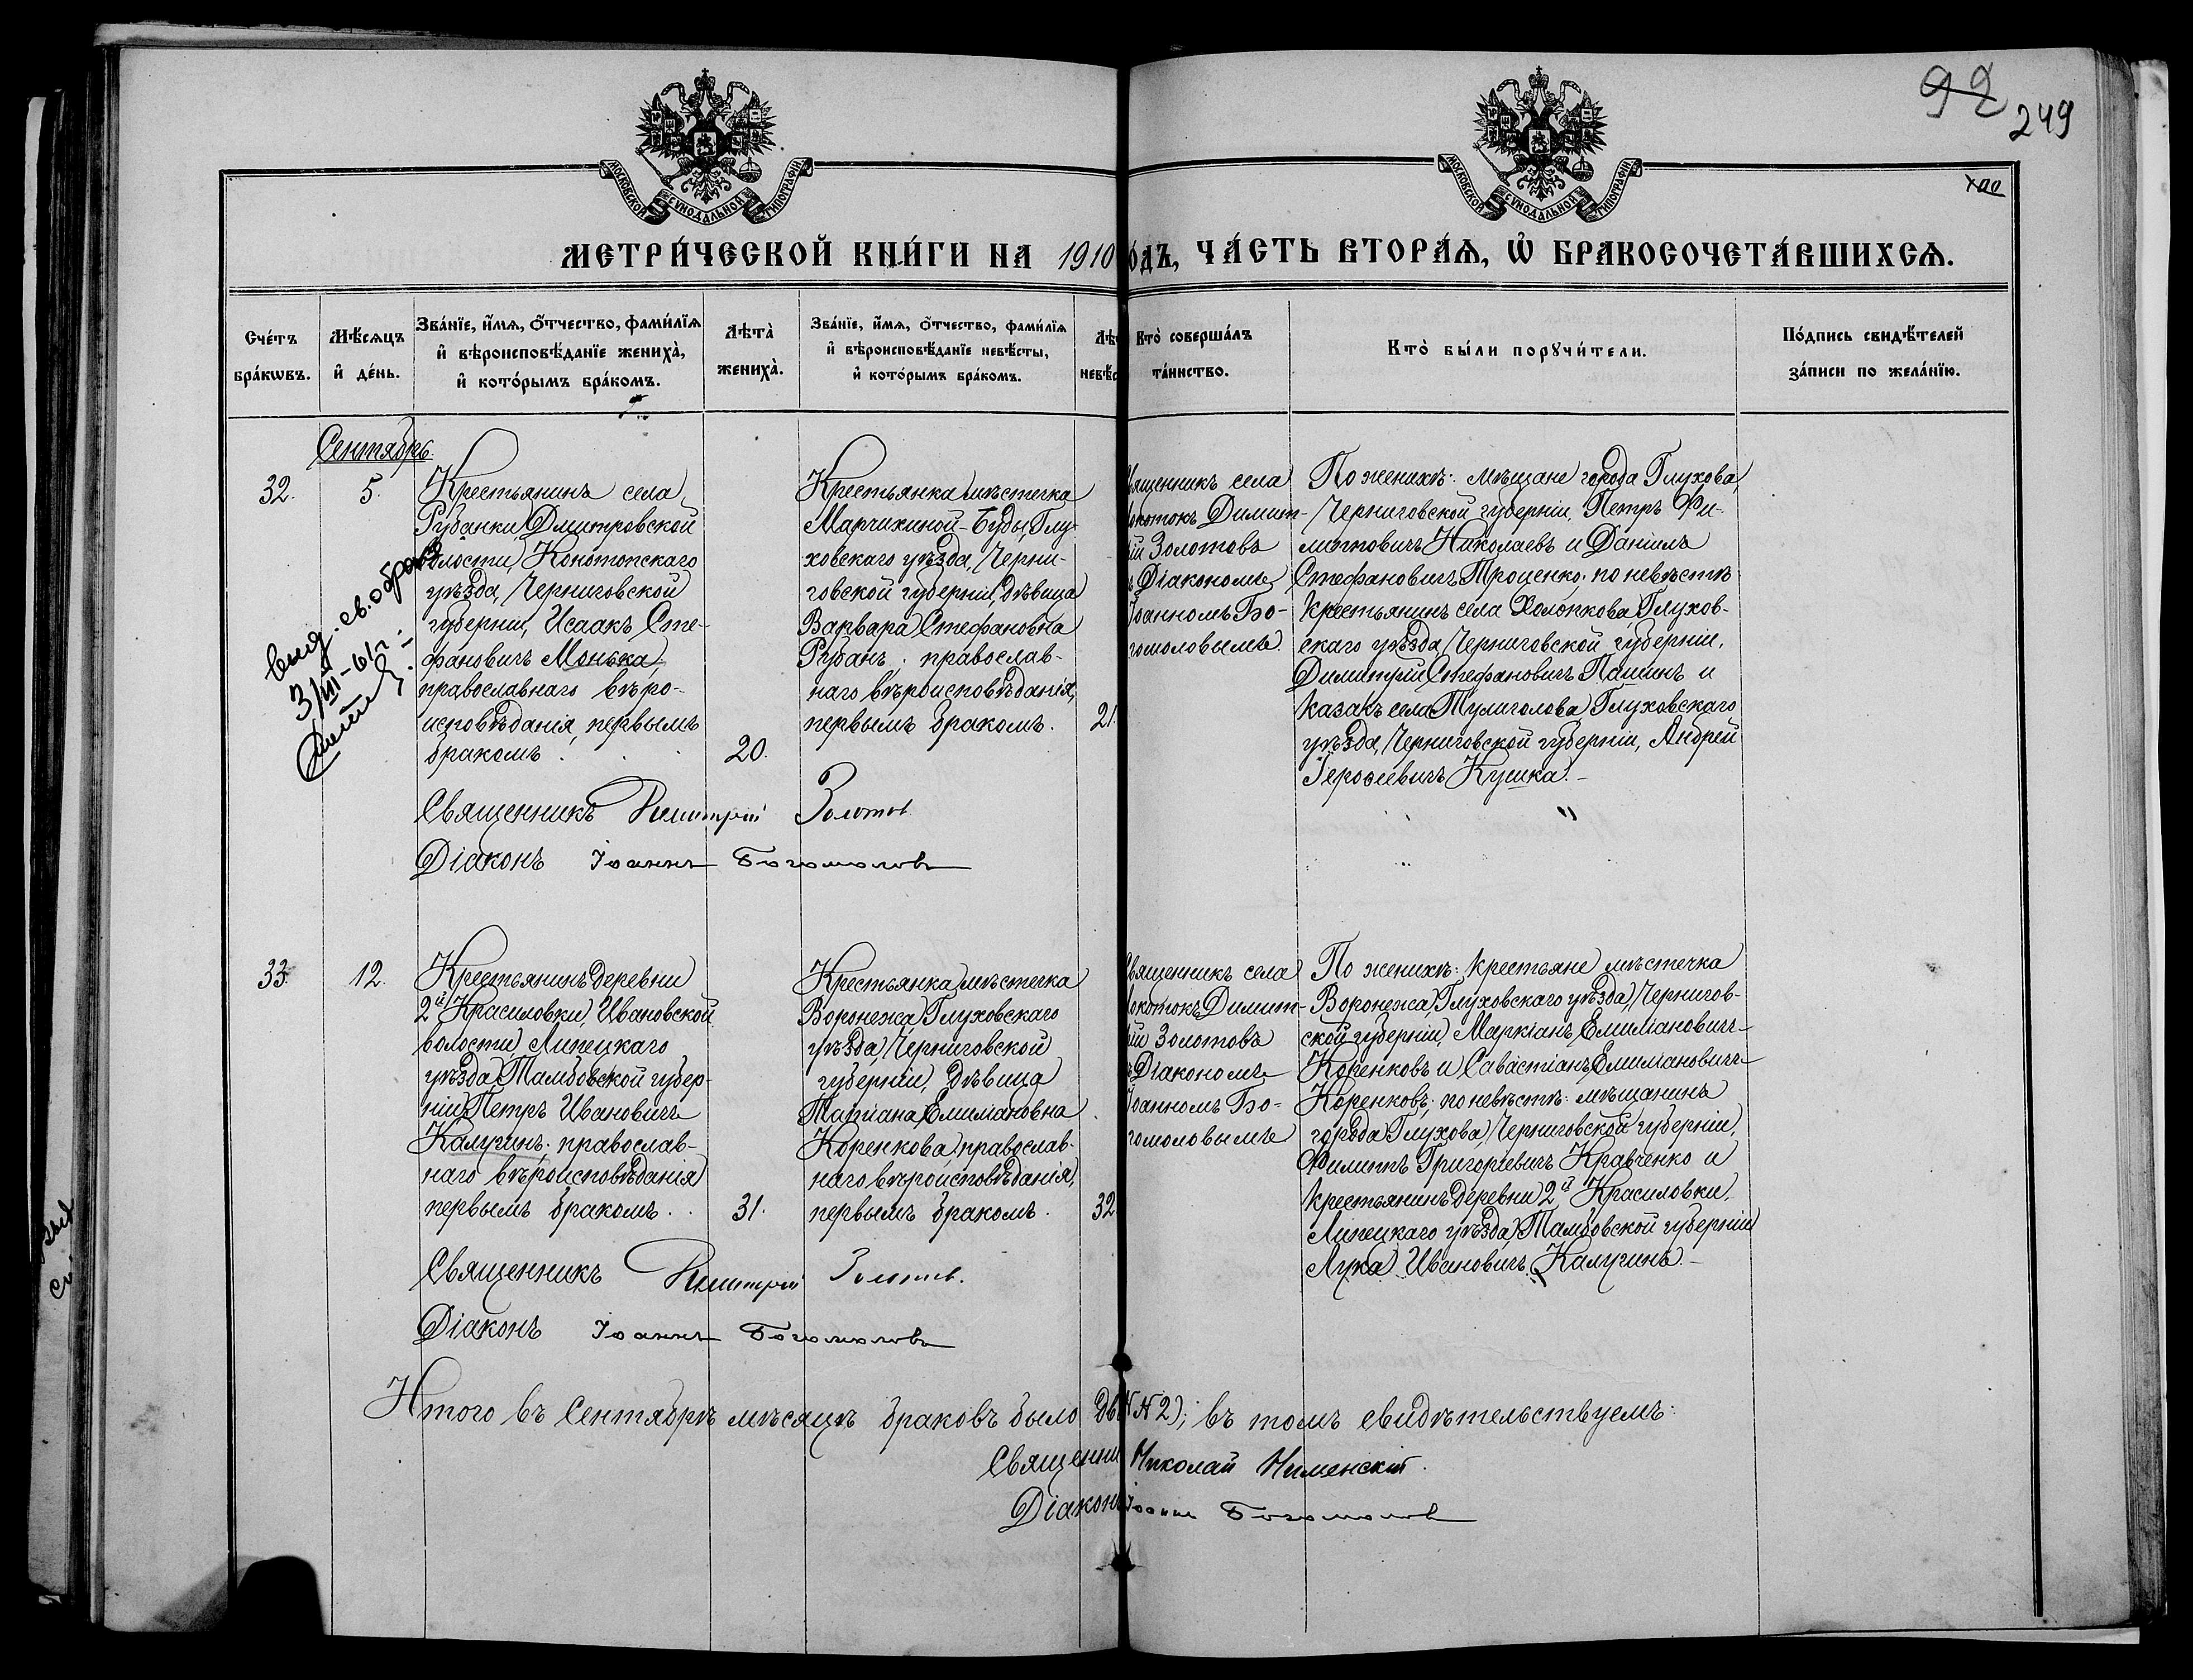 92
249
МОСКОВСКОЙ СѴНОДАЛЬНОЙ ТИПОГРАФІИ
МОСКОВСКОЙ СѴНОДАЛЬНОЙ ТИПОГРАФІИ
МЕТРИ́ЧЕСКОЙ КНИ́ГИ НА 1910
О́ДЪ, ЧА́СТЬ ВТОРА́Ѧ, Ѡ҆ БРАКОСОЧЕТА́ВШИХСѦ.
Сче́тъ бра́кѡвъ.
Мѣ́сѧцъ и҆ де́нь.
Зва́нїе, и҆́мѧ, ѻ҆́тчество, фами́лїѧ
и҆ вѣроисповѣ́данїе жениха̀,
и҆ кото́рымъ бра́комъ.
Лѣта̀ жениха̀.
Зва́нїе, и҆́мѧ, ѻ҆́тчество, фами́лїѧ
и҆ вѣроисповѣ́данїе невѣ́сты,
и҆ кото́рымъ бра́комъ.
Лѣ
невѣс
Кто̀ соверша́лъ
та́инство.
Кто̀ бы́ли порꙋчи́тели.
По́дпись свидѣ́телей
за́писи по жела́нїю.
Сентябрь.
32.
5.
Крестьянинъ села
Рубанки, Дмитровской
волости, Конотопскаго
уѣзда, Черниговской
губерніи, Исаакъ Сте-
фановичъ Монька,
православнаго вѣро-
исповѣданія, первымъ
бракомъ.
20.
Крестьянка мѣстечка
Марчихиной-Буды, Глу-
ховскаго уѣзда, Черни-
говской губерніи, дѣвица
Варвара Стефановна
Рубанъ, православ-
наго вѣроисповѣданія,
первымъ бракомъ.
21.
вященникъ села
окотокъ Димит-
ій Золотовъ
ъ Діакономъ
Іоанномъ Бо-
гомоловымъ.
По женихѣ: мѣщане города Глухова,
Черниговской губерніи, Петръ Фи-
липповичъ Николаевъ и Даніилъ
Стефановичъ Троценко; по невѣстѣ
крестьянинъ села Холопкова, Глухов-
скаго уѣзда, Черниговской губерніи,
Димитрій Стефановичъ Пашинъ и
казакъ села Тулиголова Глуховскаго
уѣзда, Черниговской губерніи, Андрей
Іерофеевичъ Кушка. –
выд. св. обрак
3/VIII-61г.
Священникъ Димитрій Золотов
Діаконъ Іоаннъ Богомоловъ
33.
12.
Крестьянинъ деревни
2й Красиловки, Ивановской
волости, Липецкаго
уѣзда, Тамбовской губер-
ніи, Петръ Ивановичъ
Калугинъ, православ-
наго вѣроисповѣданія
первымъ бракомъ.
31.
Крестьянка мѣстечка
Воронежа, Глуховскаго
уѣзда, Черниговской
губерніи, дѣвица
Татіана Емиліановна
Коренкова, православ-
наго вѣроисповѣданія,
первымъ бракомъ.
32
вященникъ села
окотокъ Димит-
ій Золотовъ
ъ Діакономъ
Іоанномъ Бо-
гомоловымъ
По женихѣ: крестьяне мѣстечка
Воронежа, Глуховскаго уѣзда, Чернигов-
ской губерніи, Маркіанъ Емиліановичъ
Коренковъ и Савастіанъ Емиліановичъ
Коренковъ; по невѣстѣ: мѣщанинъ
города Глухова, Черниговской губерніи,
Филиппъ Григоріевичъ Кравченко и
крестьянинъ деревни 2й Красиловки,
Липецкаго уѣзда, Тамбовской губерніи
Лука Ивановичъ Калугинъ. –
Священникъ Димитрій Золотов.
Діаконъ Іоаннъ Богомоловъ
Итого въ Сентябрѣ мѣсяцѣ браковъ было дв № 2); въ томъ свидѣтельствуемъ:
Священни Николай
Діаконъ Іоаннъ Богомолов